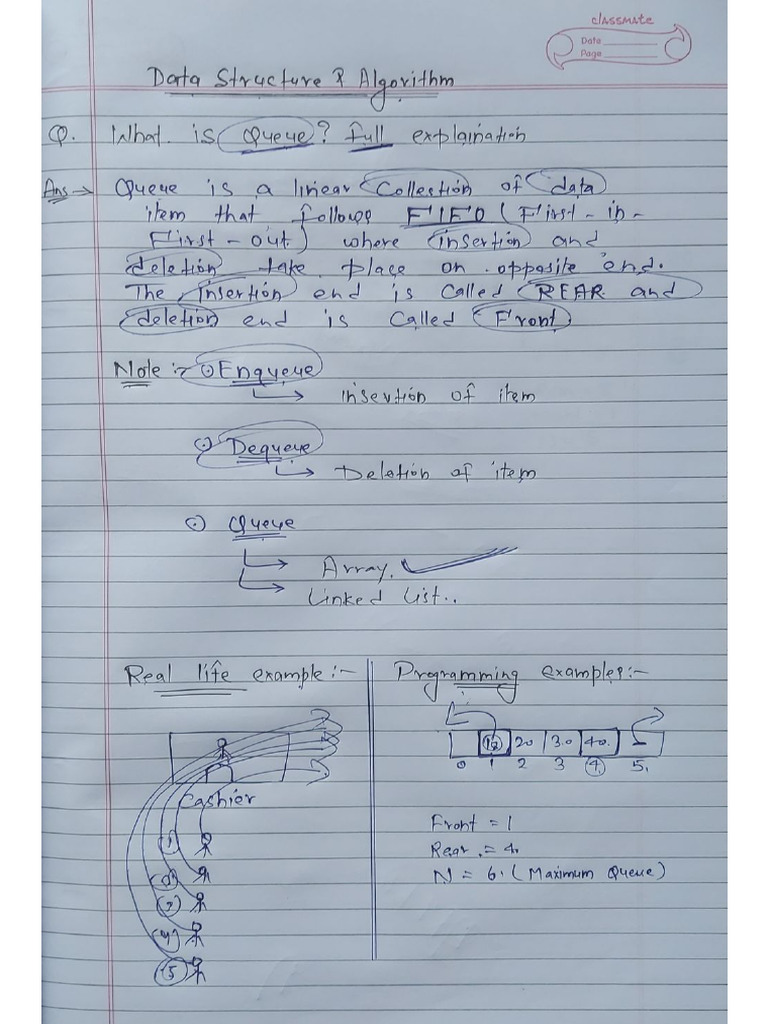 classmate
Date
Page
Data Structure & Algorithm
Q. What is Queue? full explaination
Ans → Queue is a linear Collection of data
item that follows FIFO (First-in-
First-out) where insertion and
deletion take place on opposite end.
The insertion end is called REAR and
deletion end is called Front.
Note :- Enqueue
→ insertion of item
Dequeue
→ Deletion of item
Queue
→ Array.
→ Linked List..
Real life example :-
Cashier
1
2
3
4
5
Programming examples :-
20 30 40.
0 1 2 3 4 5.
Front = 1
Rear = 4.
N = 6. (Maximum Queue)